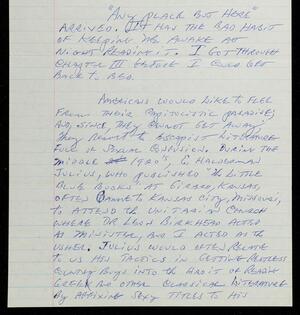 "Any Place But Here"
arrived. It has the bad habit
of keeping me awake at
night reading it. I got through
Chapter III before I could get
back to bed.
Americans would like to flee
from their capitolistic paradise;
and, since they cannot get away,
they resort to escapist literature
full of sexual obsession. During the
middle 1920's, E. Haldeman
Julius, who published "The Little
Blue Books" at Girard, Kansas,
often came to Kansas City, Missouri,
to attend the Unitarian Church
where Dr Leon Birkhead acted
as minister, and I acted as the
usher. Julius would often relate
to us his tactics in getting restless
country boys into the habit of reading
Greek and other classical literature
by affixing sexy titles to his